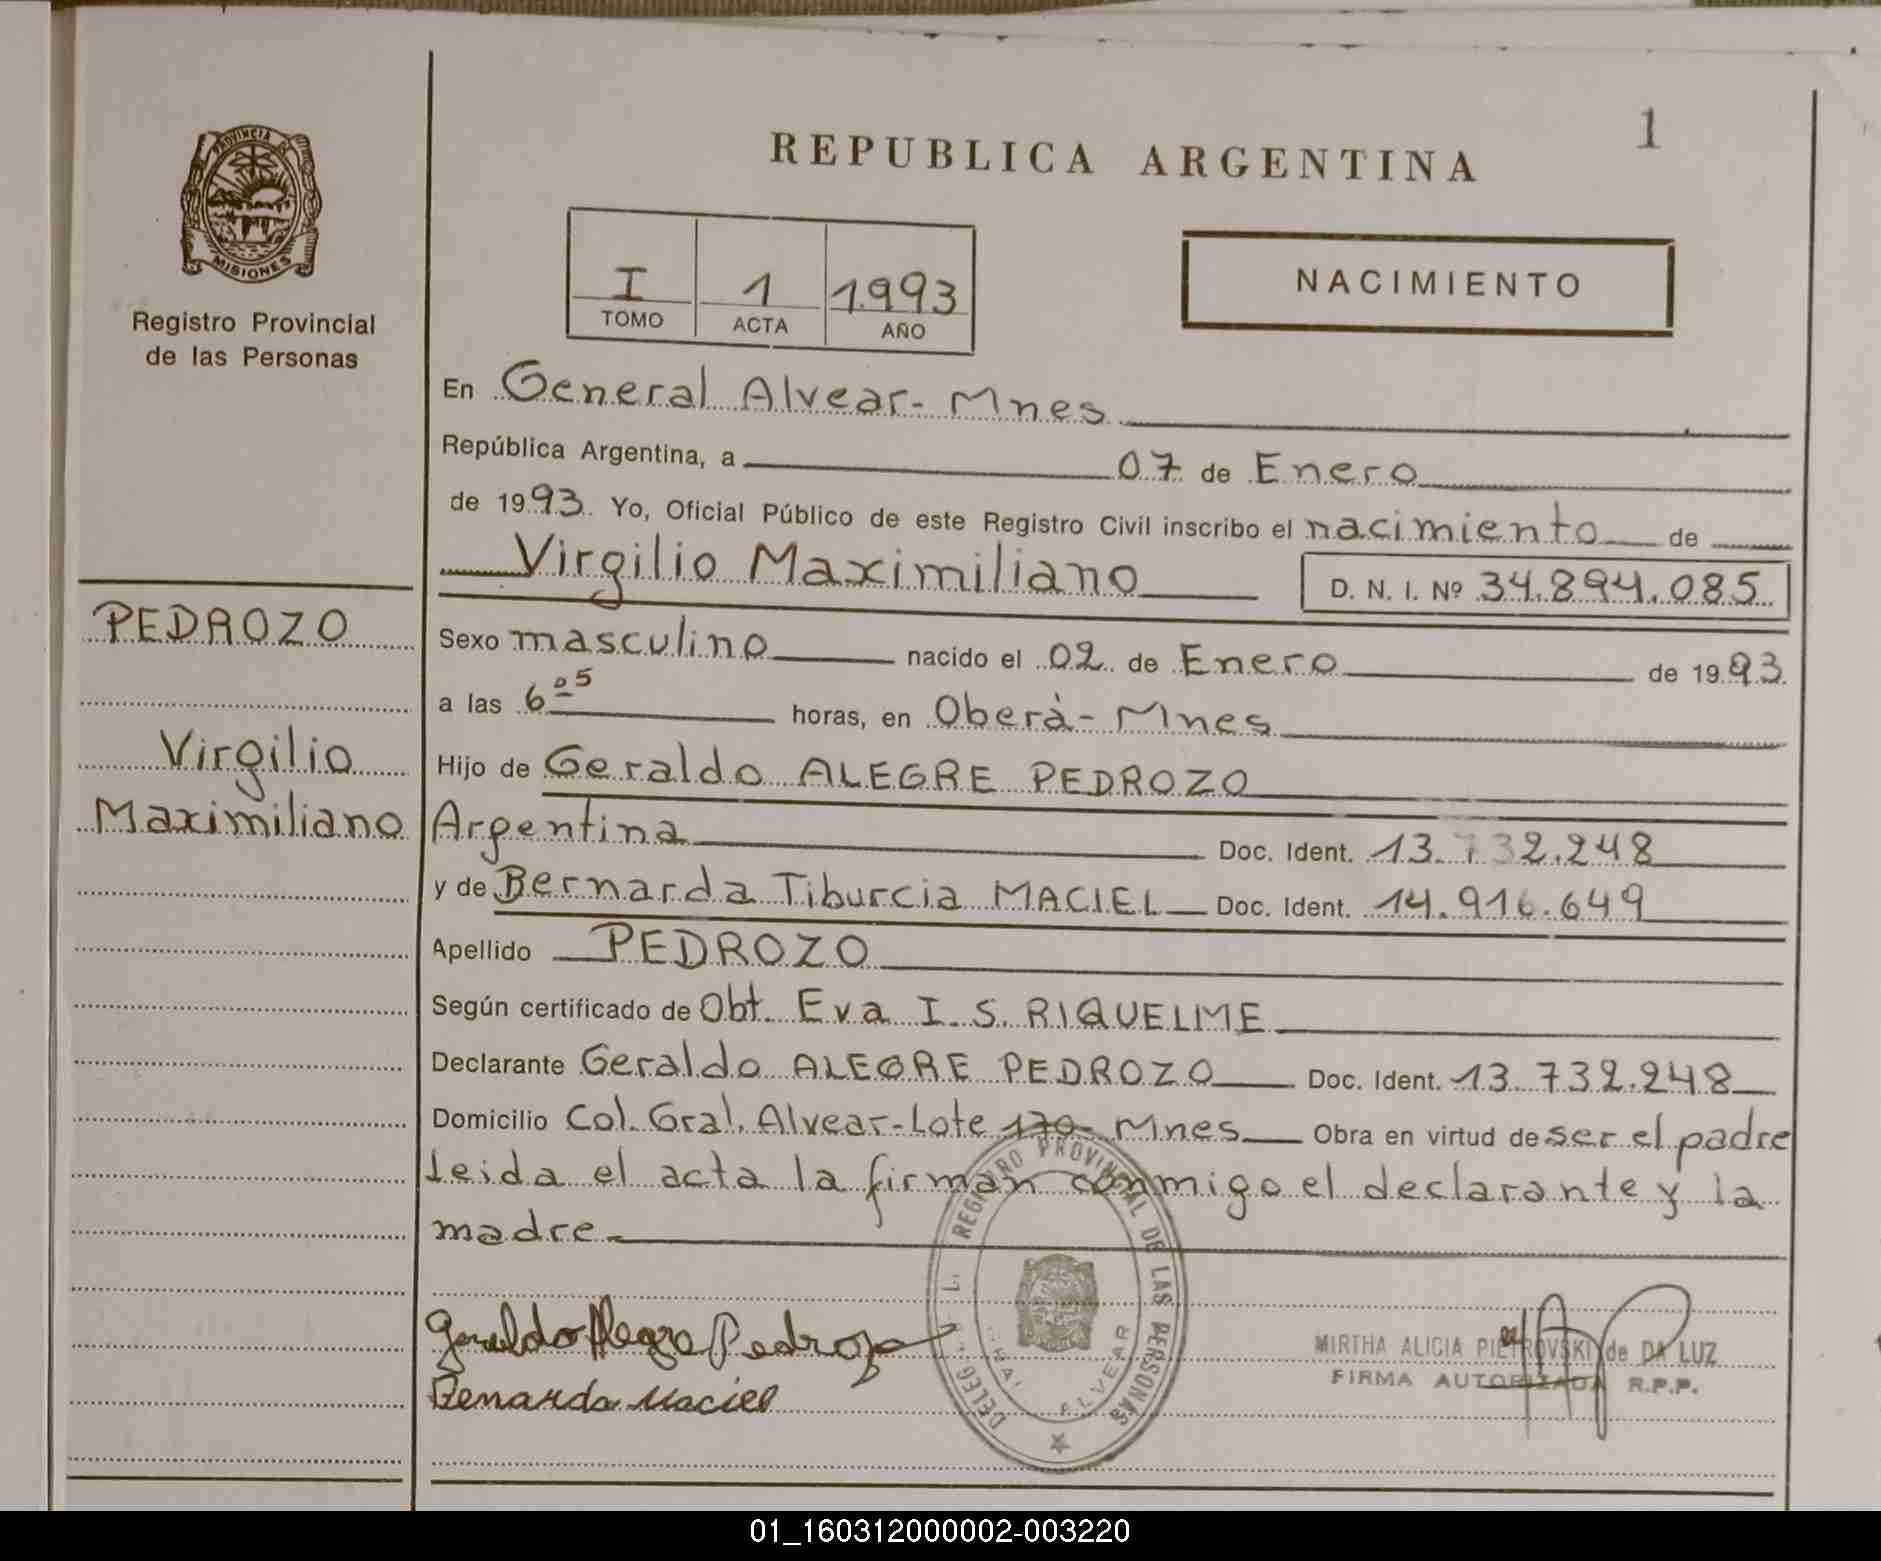 1
REPUBLICA ARGENTINA
PROVINCIA
MISIONES
Registro Provincial
de las Personas
I 1 1993
TOMO ACTA AÑO
NACIMIENTO
En General Alvear - Mnes
República Argentina, a 07 de Enero
de 1993 Yo, Oficial Público de este Registro Civil inscribo el nacimiento de
Virgilio Maximiliano D. N. I. Nº 34.894.085
PEDROZO
Virgilio
Maximiliano
Sexo masculino nacido el 02 de Enero de 1993
a las 6 05 horas, en Oberà - Mnes
Hijo de Geraldo ALEGRE PEDROZO
Argentina Doc. Ident. 13.732.248
y de Bernarda Tiburcia MACIEL Doc. Ident. 14.916.649
Apellido PEDROZO
Según certificado de Obt. Eva I. S. RIQUELME
Declarante Geraldo ALEGRE PEDROZO Doc. Ident. 13.732.248
Domicilio Col. Gral. Alvear - Lote 170 - Mnes Obra en virtud de ser el padre
Leida el acta la firman conmigo el declarante y la
madre
REGISTRO PROVINCIAL DE LAS PERSONAS
ALVEAR
Geraldo Alegre Pedrozo
Benarda Maciel
MIRTHA ALICIA PIETROVSKI de DA LUZ
FIRMA AUTORIZADA R.P.P.
01_160312000002-003220